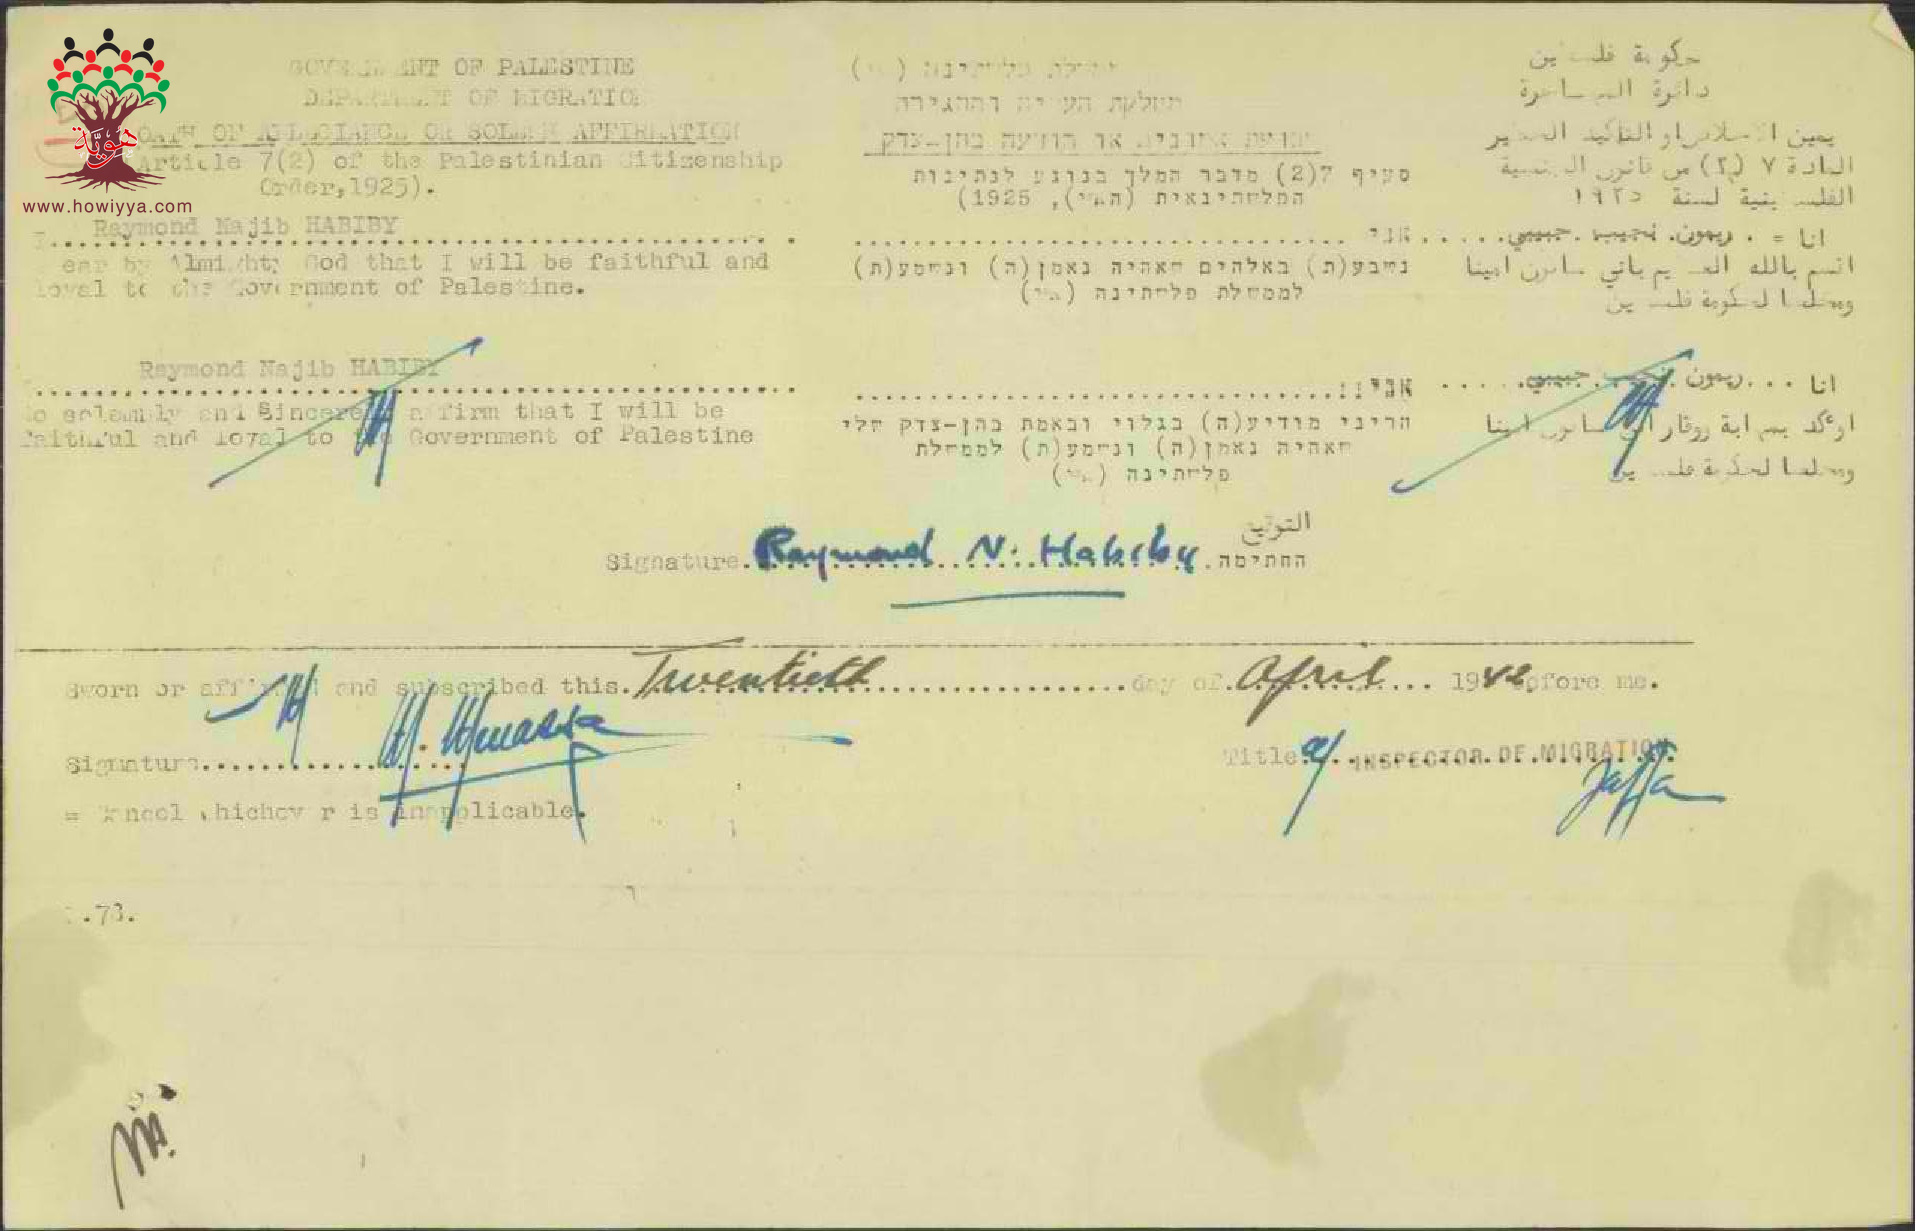 GOVERNMENT OF PALESTINE
DEPARTMENT OF MIGRATION
OATH OF ALLEGIANCE OR SOLEMN AFFIRMATION
Article 7(2) of the Palestinian Citizenship
Order,1925).
Raymond Najib HABIBY
ear by Almighty God that I will be faithful and
loyal to the Government of Palestine.
Raymond Najib HABIBY
do solemnly and Sincerely affirm that I will be
faithful and loyal to the Government of Palestine
ממשלת פלשתינה (א״י)
מחלקת העליה וההגירה
שבועת אמונים או הודעה בהן-צדק
סעיף 7(2) מדבר המלך בנוגע לנתינות
הפלשתינאית (הא״י), 1925)
אני
נשבע(ת) באלהים שאהיה נאמן(ה) ונשמע(ת)
לממשלת פלשתינה (א״י)
אני
הריני מודיע(ה) בגלוי ובאמת בהן-צדק שלי
שאהיה נאמן(ה) ונשמע(ת) לממשלת
פלשתינה (א״י)
حكومة فلسطين
دائرة المهاجرة
يمين الاخلاص او التأكيد الخطير
المادة ٧ (٢) من قانون الجنسية
الفلسطينية لسنة ١٩٢٥
انا = ريمون نجيب حبيبي
اقسم بالله العظيم باني سأكون امينا
ومخلصا لحكومة فلسطين
انا ريمون نجيب حبيبي
اؤكد بصراحة ووقار اني سأكون امينا
ومخلصا لحكومة فلسطين
التوقيع
Signature Raymond N. Habiby החתימה
Sworn or affirmed and subscribed this Twentieth day of April 1942 before me.
Signature
Title a/ INSPECTOR OF MIGRATION
Jaffa
= Cancel whichever is inapplicable.
.73.
هوية
www.howiyya.com